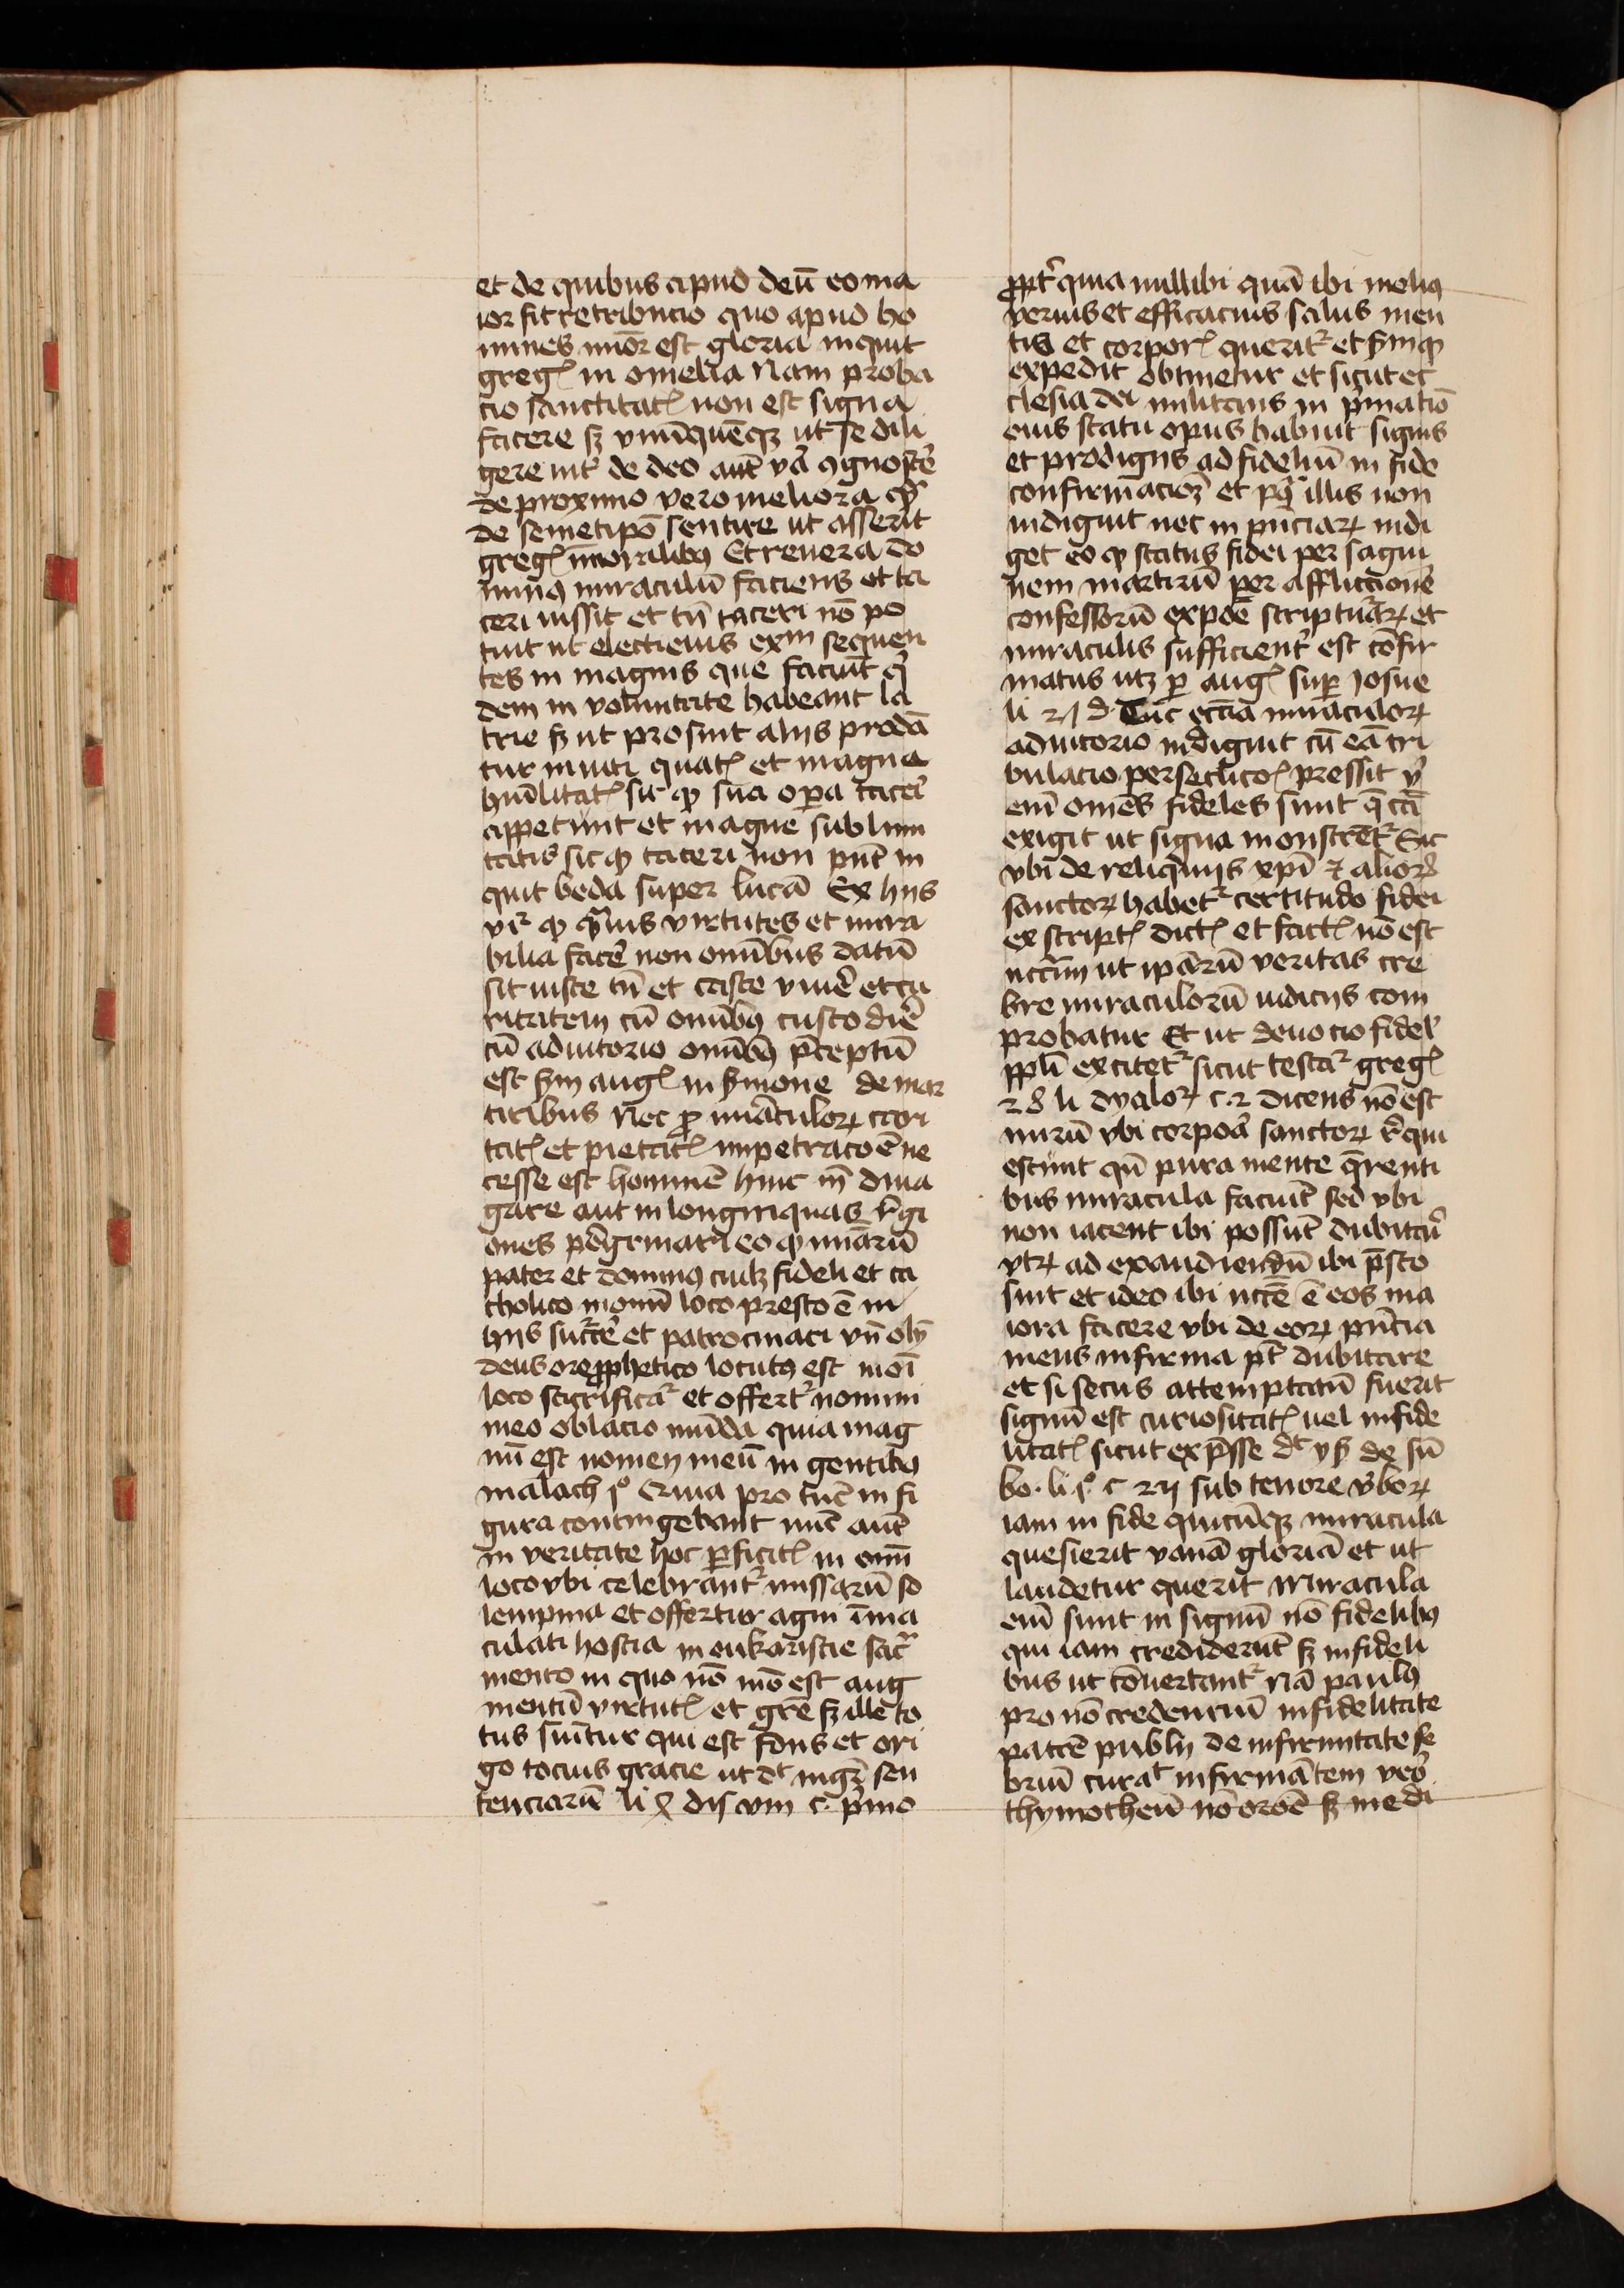 et de quibus apud deū eo ma
ior fit retribucio quo apud ho
mines mīor est gloria inquit
gregꝭ in omelia Nam proba
cio sanctitatꝭ non est signa
facere sꝫ vnūquēqꝫ ut se dili
gere int᷑ de deo aūt v᷑a ꝯgnoscē
de proximo vero meliora qꝫ
de semetipō sentire ut asserit
gregꝭ in moralibꝯ Et reuera do
minꝯ miraculū faciens et ta
ceri iussit et tn̄ taceri nō po
tuit ut electi eius exm sequen
tes in magnis que faciūt q᷑
dem in voluntate habeant la
tere sꝫ ut prosint alijs prodā
tur inuiti quatꝭ et magne
hūilitatꝭ sit ꝙ sua oꝑa tace᷑i
appetunt et magne sublimi
tatis sit ꝙ taceri non pn̄t in
quit beda super lucā Ex hijs
vr᷑ ꝙ quāuis virtutes et mira
bilia face᷑ non omībus datū
sit iuste tn̄ et caste viue᷑ et ca
ritatem cū omībꝯ custodire᷑
cū adiutorio omībꝯ p̄ceptū
est ẜm augꝭ in ẜmone de mar
tiribus Nec ꝓ mirāculoꝝ
tatꝭ et pietatꝭ impetracōe ne
cesse est hominē huc in̄ diua
gare aut in longinquas r᷑gi
ones ꝑegrinari eo ꝙ mīarū
pater et dominꝯ cuilꝫ fideli et ca
tholico in om̄i loco presto ē in
hijs succ᷑re᷑ et patrocinari vn̄ olī
deus ore ꝓphetico locutꝯ est in om̄i
loco sacrificat᷑ et offert᷑ nomini
meo oblacio mūda quia mag
nū est nomen meū in gentibꝯ
malach pº Quia pro tūc in fi
gura contingebant nūc aūt
in veritate hoc ꝑficitꝭ in om̄i
loco vbi celebrant᷑ missarū so
lempnia et offertur agni īma
culati hostia in eukaristie sac᷑
mento in quo nō mō est aug
mentū virtutꝭ et grē sꝫ ille to
tus sumitur qui est fons et ori
go tocius gracie ut dt mgr᷑ sen
tenciarū li 4 dis viii c. p᷑mo
ꝓpt᷑ quia nullibi quā ibi meliꝯ
verius et efficacius salus men
tis et corporꝭ querit᷑ et ẜm ꝙ
expedit obtinetur et sicut ec
clesia dei militans in p᷑matiō
eius statu opus habuit signis
et prodigijs ad fideliū in fide
confirmacioꝫ et pꝗ illis non
indiguit nec in pn̄ciaꝝ indi
get eo ꝙ status fidei per sagui
nem martirū per afflictione᷑
confessorū expōe scripturaꝝ et
miraculis sufficient᷑ est cōfir
matus utꝫ ꝑ augꝭ suꝑ Josue
li 21 d. Tūc ecclīa miraculoꝝ
adiutorio indiguit cū eā tri
bulacio persecucioꝭ pressit v᷑
em̄ omēs fideles sunt q̄ cā
exigit ut signa monstrēt᷑ Sic
vbi de reliquijs xp̄i ⁊ alioꝝ
sanctoꝝ habet᷑ certitudo fidei
ex scriptꝭ dictꝭ et factꝭ nō est
necc᷑m ut ip̄arū veritas cre
bre miraculorū iudicijs com
probatur Et ut deuocio fidel᷑
ppl̄i excitet᷑ sicut testat᷑ gregꝭ
28 li dyaloꝝ c. 2 dicens nō est
mirū vbi corpoa᷑ sanctoꝝ r᷑qui
escunt qn̄ pura mente q̄renti
bus miracula faciūt sed vbi
non iacent ibi possūt dubitar᷑i
vtꝝ ad exaudiendū ibi p̄sto
sint et ideo ibi nccē ē eos ma
iora facere vbi de eoꝝ pn̄cia
mens infirma pt̄ dubitare
et si secus attemptatū fuerit
signū est curiositatꝭ uel infide
litatꝭ sicut exp̄sse dt ysi᷑ de sū
bo. li pº c 22 sub tenore v᷑boꝝ
iam in fide quicūqꝫ miracula
quesierit vanā gloriā et ut
laudetur querit Miracula
em̄ sunt in signū nō fidelibꝯ
qui iam crediderūt sꝫ infideli
bus ut cōuertant᷑ Nā paulꝯ
pro nō credencium infidelitate
patrē publij de infirmitate fe
brium curat infirmātem vero᷑
thymotheū nō orōe sꝫ medi